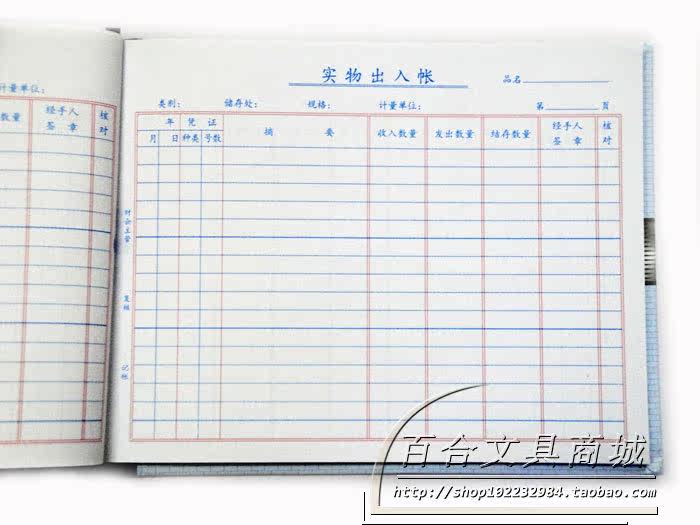 计量单位：
数量
经手人
签 章
核对
实物出入帐
品名
类别： 储存处： 规格： 计量单位： 第 页
年 凭 证
月 日 种类 号数
摘 要
收入数量 发出数量 结存数量
经手人
签 章
核对
财会主管
复核
记帐
百合文具商城
http://shop102232984.taobao.com/